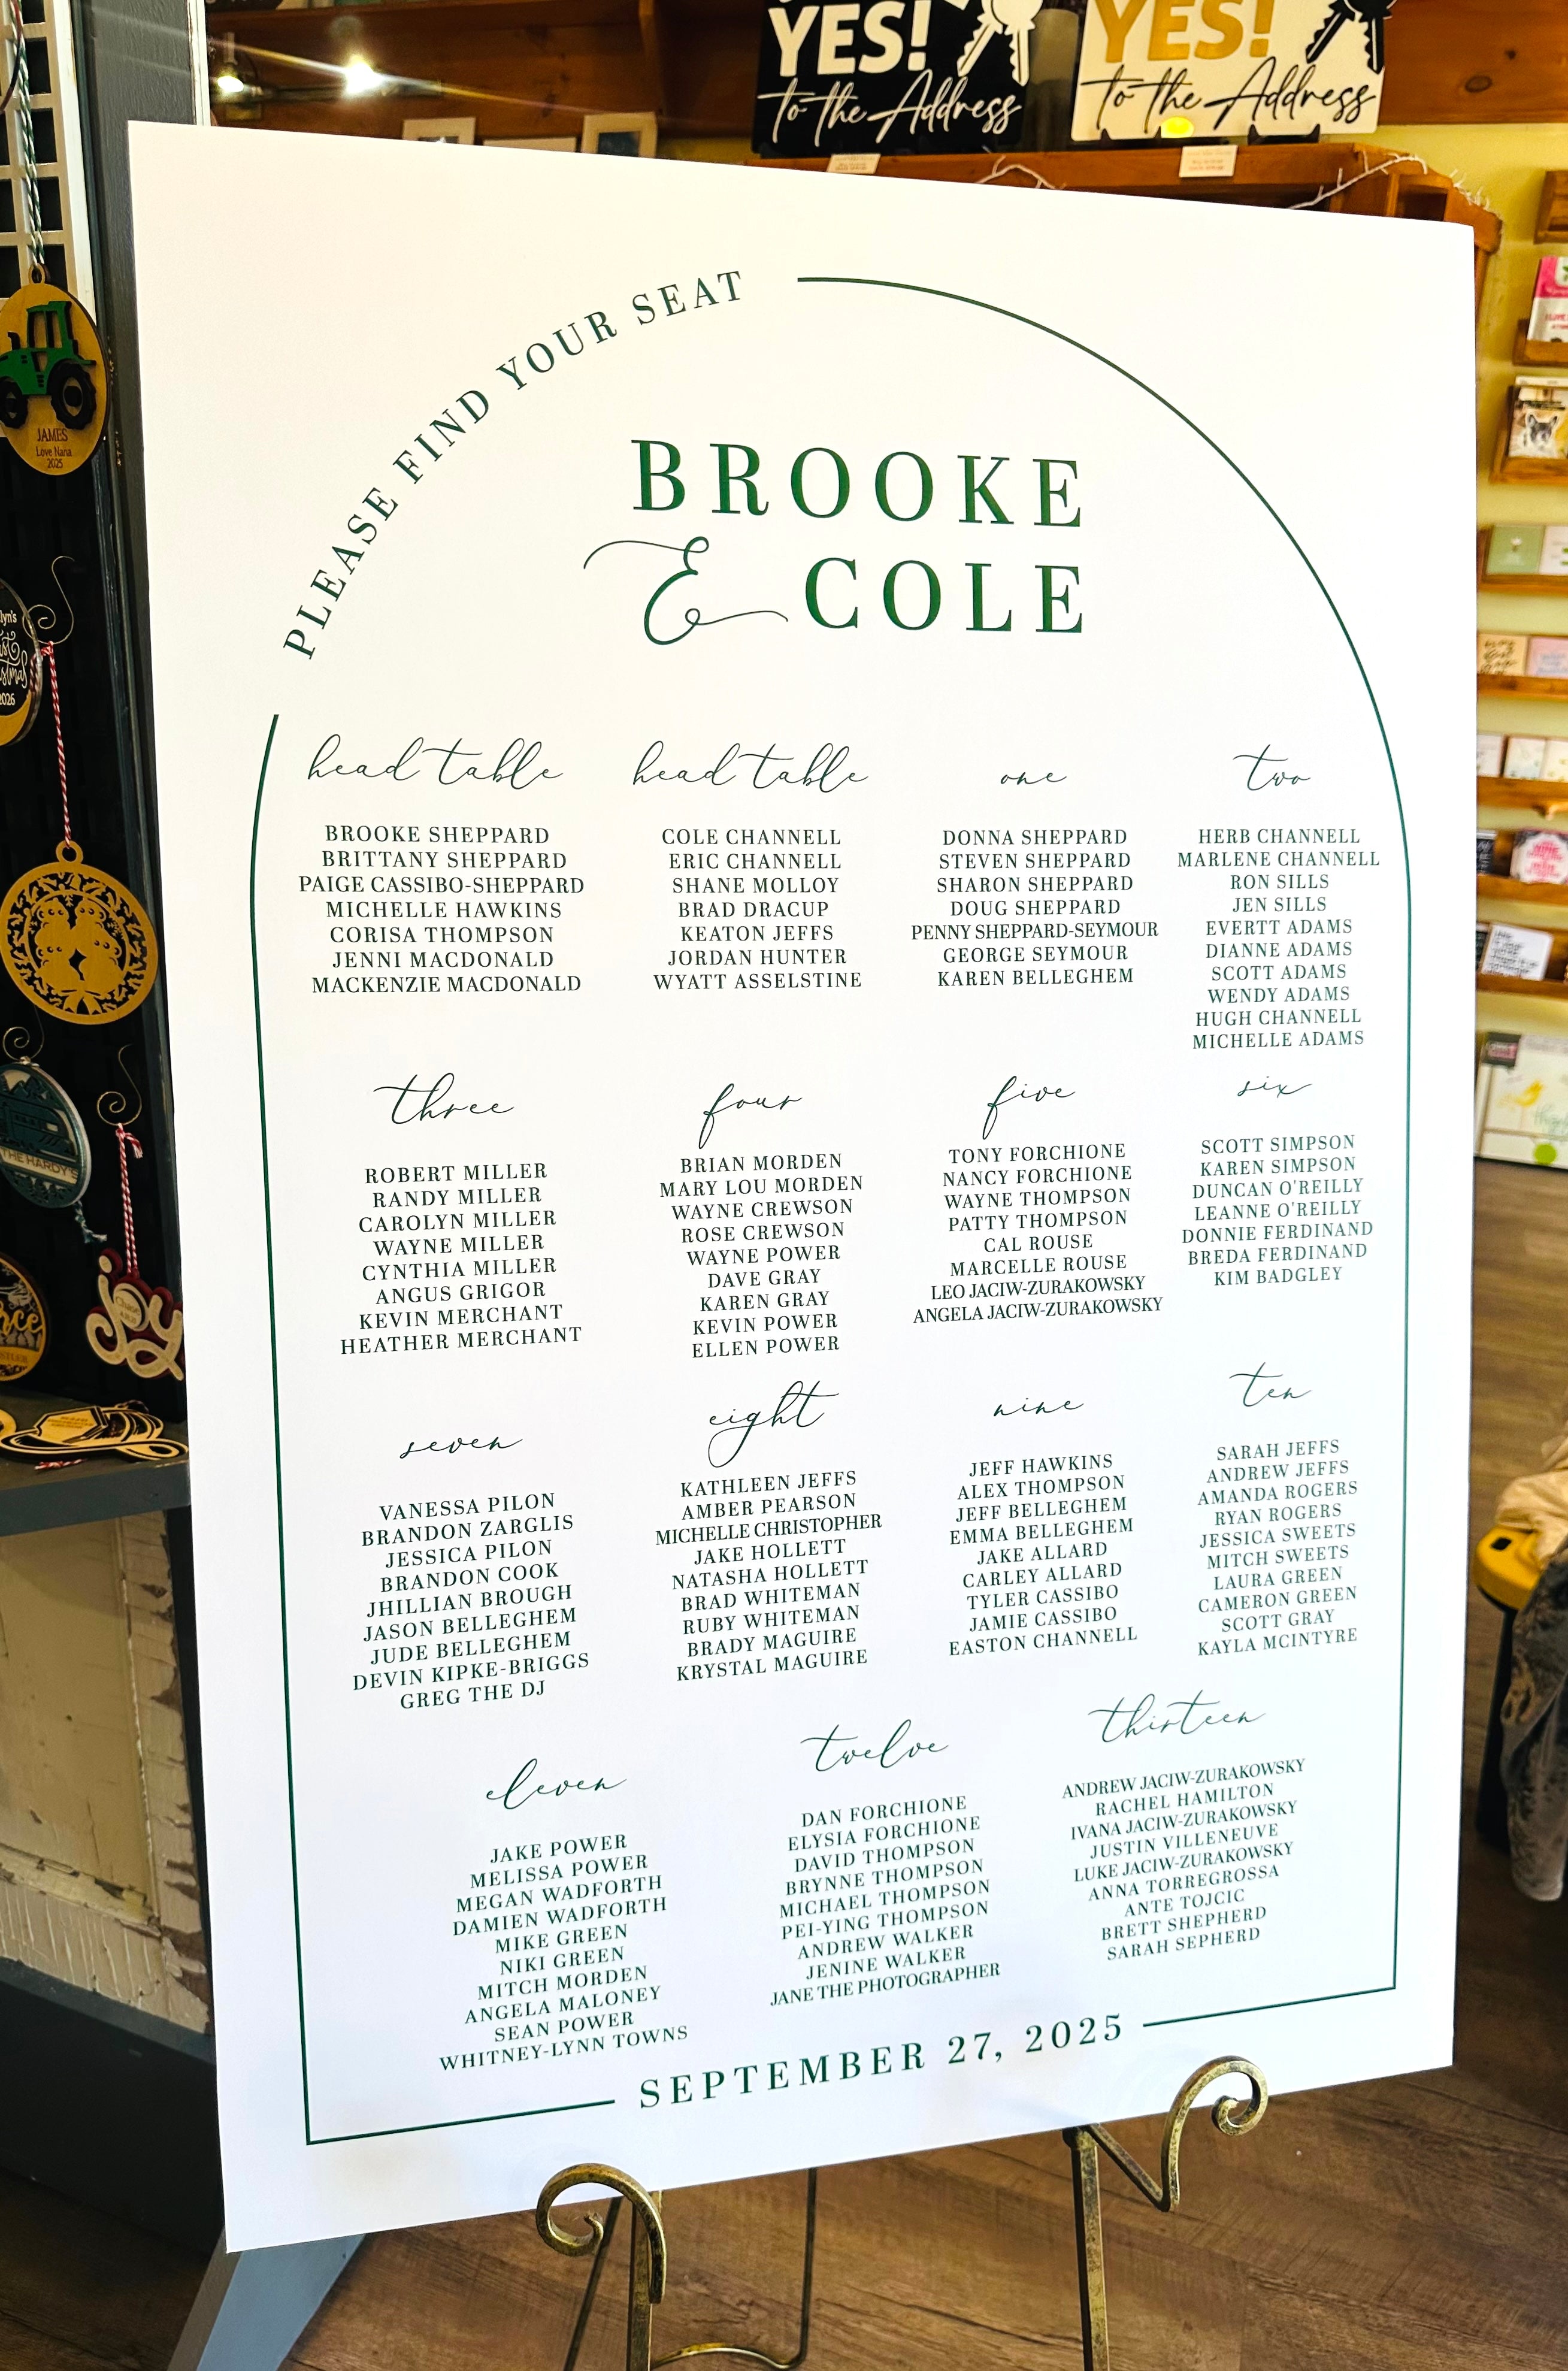 YES!
to the Address
YES!
to the Address
JAMES
Love Nana
2025
PLEASE FIND YOUR SEAT
BROOKE
& COLE
head table
BROOKE SHEPPARD
BRITTANY SHEPPARD
PAIGE CASSIBO-SHEPPARD
MICHELLE HAWKINS
CORISA THOMPSON
JENNI MACDONALD
MACKENZIE MACDONALD
head table
COLE CHANNELL
ERIC CHANNELL
SHANE MOLLOY
BRAD DRACUP
KEATON JEFFS
JORDAN HUNTER
WYATT ASSELSTINE
one
DONNA SHEPPARD
STEVEN SHEPPARD
SHARON SHEPPARD
DOUG SHEPPARD
PENNY SHEPPARD-SEYMOUR
GEORGE SEYMOUR
KAREN BELLEGHEM
two
HERB CHANNELL
MARLENE CHANNELL
RON SILLS
JEN SILLS
EVERTT ADAMS
DIANNE ADAMS
SCOTT ADAMS
WENDY ADAMS
HUGH CHANNELL
MICHELLE ADAMS
three
ROBERT MILLER
RANDY MILLER
CAROLYN MILLER
WAYNE MILLER
CYNTHIA MILLER
ANGUS GRIGOR
KEVIN MERCHANT
HEATHER MERCHANT
four
BRIAN MORDEN
MARY LOU MORDEN
WAYNE CREWSON
ROSE CREWSON
WAYNE POWER
DAVE GRAY
KAREN GRAY
KEVIN POWER
ELLEN POWER
five
TONY FORCHIONE
NANCY FORCHIONE
WAYNE THOMPSON
PATTY THOMPSON
CAL ROUSE
MARCELLE ROUSE
LEO JACIW-ZURAKOWSKY
ANGELA JACIW-ZURAKOWSKY
six
SCOTT SIMPSON
KAREN SIMPSON
DUNCAN O'REILLY
LEANNE O'REILLY
DONNIE FERDINAND
BREDA FERDINAND
KIM BADGLEY
seven
VANESSA PILON
BRANDON ZARGLIS
JESSICA PILON
BRANDON COOK
JHILLIAN BROUGH
JASON BELLEGHEM
JUDE BELLEGHEM
DEVIN KIPKE-BRIGGS
GREG THE DJ
eight
KATHLEEN JEFFS
AMBER PEARSON
MICHELLE CHRISTOPHER
JAKE HOLLETT
NATASHA HOLLETT
BRAD WHITEMAN
RUBY WHITEMAN
BRADY MAGUIRE
KRYSTAL MAGUIRE
nine
JEFF HAWKINS
ALEX THOMPSON
JEFF BELLEGHEM
EMMA BELLEGHEM
JAKE ALLARD
CARLEY ALLARD
TYLER CASSIBO
JAMIE CASSIBO
EASTON CHANNELL
ten
SARAH JEFFS
ANDREW JEFFS
AMANDA ROGERS
RYAN ROGERS
JESSICA SWEETS
MITCH SWEETS
LAURA GREEN
CAMERON GREEN
SCOTT GRAY
KAYLA MCINTYRE
eleven
JAKE POWER
MELISSA POWER
MEGAN WADFORTH
DAMIEN WADFORTH
MIKE GREEN
NIKI GREEN
MITCH MORDEN
ANGELA MALONEY
SEAN POWER
WHITNEY-LYNN TOWNS
twelve
DAN FORCHIONE
ELYSIA FORCHIONE
DAVID THOMPSON
BRYNNE THOMPSON
MICHAEL THOMPSON
PEI-YING THOMPSON
ANDREW WALKER
JENINE WALKER
JANE THE PHOTOGRAPHER
thirteen
ANDREW JACIW-ZURAKOWSKY
RACHEL HAMILTON
IVANA JACIW-ZURAKOWSKY
JUSTIN VILLENEUVE
LUKE JACIW-ZURAKOWSKY
ANNA TORREGROSSA
ANTE TOJCIC
BRETT SHEPHERD
SARAH SEPHERD
SEPTEMBER 27, 2025
THE HARDY'S
joy
2026